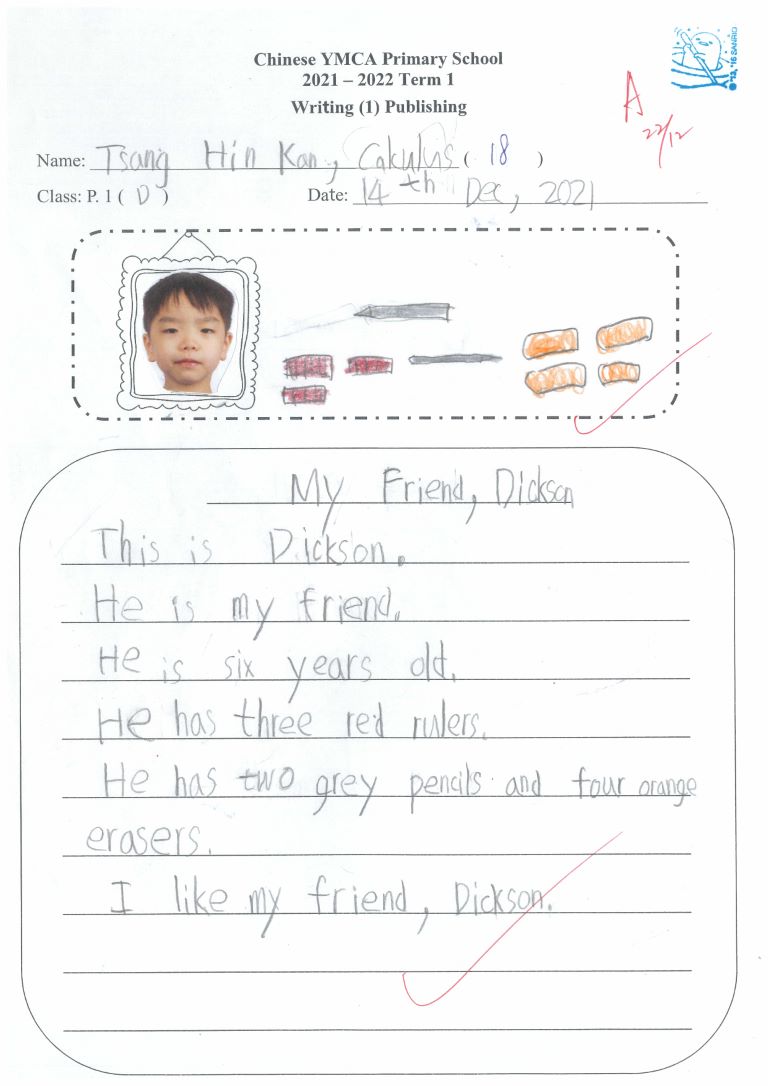 Chinese YMCA Primary School
2021 – 2022 Term 1
Writing (1) Publishing
© '13, '16 SANRIO
A
22/12
Name: Tsang Hin Kan, Calculus ( 18 )
Class: P. 1 ( D ) Date: 14th Dec, 2021
My Friend, Dickson
This is Dickson.
He is my friend.
He is six years old.
He has three red rulers.
He has two grey pencils and four orange
erasers.
I like my friend, Dickson.